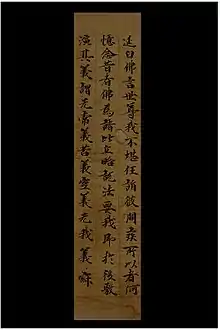 延白佛言世尊我不堪任詣彼問疾所以者何
憶念昔者佛為諸比丘略說法要我即於後敷
演其義謂无常義苦義空義无我義寂